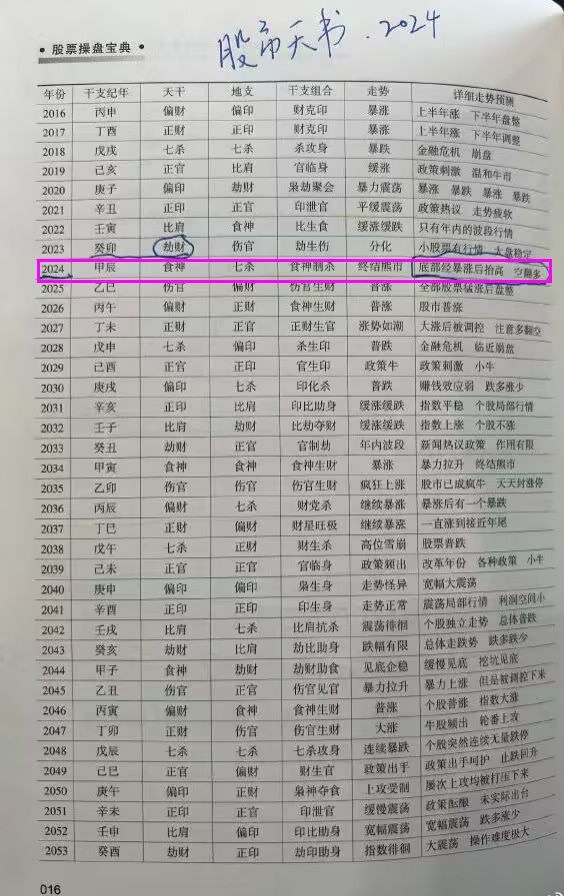 股市天书.2024
• 股票操盘宝典 •
年份 干支纪年 天干 地支 干支组合 走势 详细走势预测
2016 丙申 偏财 偏印 财克印 暴涨 上半年涨 下半年盘整
2017 丁酉 正财 正印 财克印 暴涨 上半年涨 下半年调整
2018 戊戌 七杀 七杀 杀攻身 暴跌 金融危机 崩盘
2019 己亥 正官 比肩 官临身 缓涨 政策刺激 温和牛市
2020 庚子 偏印 劫财 枭劫聚会 暴力震荡 暴涨 暴跌 暴涨 暴跌
2021 辛丑 正印 正官 印泄官 平缓震荡 政策热议 走势疲软
2022 壬寅 比肩 食神 比生食 缓涨缓跌 只有年内的波段行情
2023 癸卯 劫财 伤官 劫生伤 分化 小股票有行情 大盘稳定
2024 甲辰 食神 七杀 食神制杀 终结熊市 底部经暴涨后抬高 空翻多
2025 乙巳 伤官 偏财 伤官生财 普涨 全部股票猛涨后盘整
2026 丙午 偏财 正财 食神生财 普涨 股市普涨
2027 丁未 正财 正官 正财生官 涨势如潮 大涨后被调控 注意多翻空
2028 戊申 七杀 偏印 杀生印 普跌 金融危机 临近崩盘
2029 己酉 正官 正印 官生印 政策牛 政策刺激 小牛
2030 庚戌 偏印 七杀 印化杀 普跌 赚钱效应弱 跌多涨少
2031 辛亥 正印 比肩 印比助身 缓涨缓跌 指数平稳 个股局部行情
2032 壬子 比肩 劫财 比劫夺财 缓涨缓跌 指数上涨 个股不涨
2033 癸丑 劫财 正官 官制劫 年内波段 新闻热议政策 作用有限
2034 甲寅 食神 食神 食神生财 暴涨 暴力拉升 终结熊市
2035 乙卯 伤官 伤官 伤官生财 疯狂上涨 股市已成疯牛 天天封涨停
2036 丙辰 偏财 七杀 财党杀 继续暴涨 暴涨后有一个暴跌
2037 丁巳 正财 偏财 财星旺极 继续暴涨 一直涨到接近年尾
2038 戊午 七杀 正财 财生杀 高位雪崩 股票普跌
2039 己未 正官 正官 官临身 政策频出 改革年份 各种政策 小牛
2040 庚申 偏印 偏印 枭生身 走势怪异 宽幅大震荡
2041 辛酉 正印 正印 印生身 走势正常 震荡局部行情 利润空间小
2042 壬戌 比肩 七杀 比肩抗杀 震荡徘徊 个股独立走势 总体普跌
2043 癸亥 劫财 比肩 劫比助身 跌幅有限 总体走跌势 跌多跌少
2044 甲子 食神 劫财 劫财助食 见底企稳 缓慢见底 挖坑见底
2045 乙丑 伤官 正官 伤官见官 暴力拉升 暴力上涨 但是被调控下来
2046 丙寅 偏财 食神 食神生财 普涨 个股普涨 指数大涨
2047 丁卯 正财 伤官 伤官生财 大涨 牛股频出 轮番上攻
2048 戊辰 七杀 七杀 七杀攻身 连续暴跌 个股突然连续无量跌停
2049 己巳 正官 偏财 财生官 政策出手 政策出手呵护 止跌回升
2050 庚午 偏印 正财 枭神夺食 上攻受制 屡次上攻均被打压下来
2051 辛未 正印 正官 印泄官 缓慢震荡 政策酝酿 未实际出台
2052 壬申 比肩 偏印 印比助身 宽幅震荡 宽幅震荡 跌多涨少
2053 癸酉 劫财 正印 劫印助身 指数徘徊 大震荡 操作难度极大
016